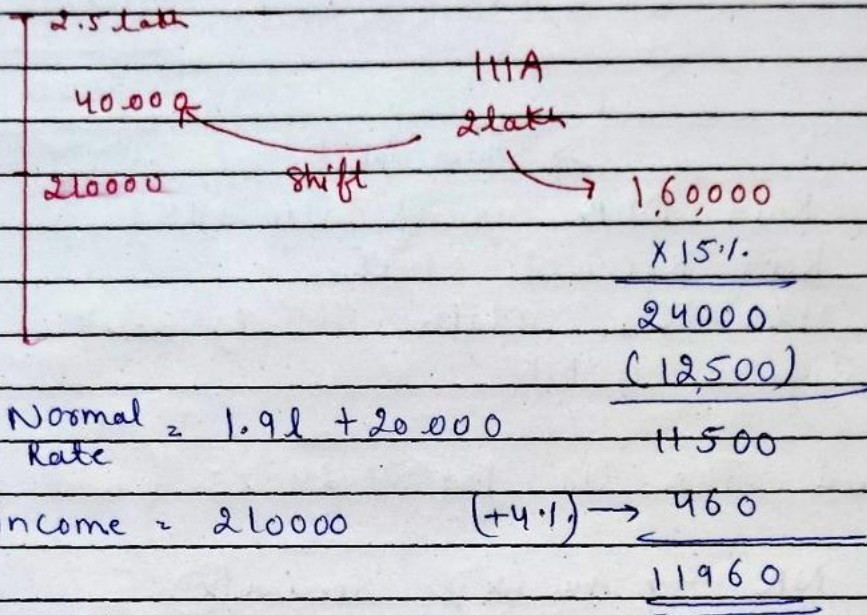 2.5 lakh
111A
40.000
2 lakh
210000 Shift 1,60,000
X 15%
24000
(12,500)
Normal Rate = 1.9l + 20.000
11500
ncome = 210000 (+4%) → 460
11960